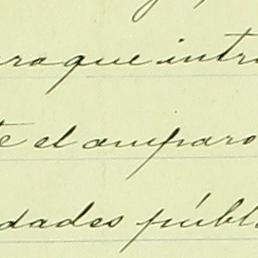 araque intr
te el amparo
dades públ